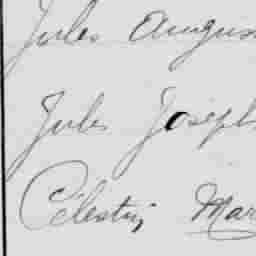 Jules Augus
Jules Joseph
Célestin Mar